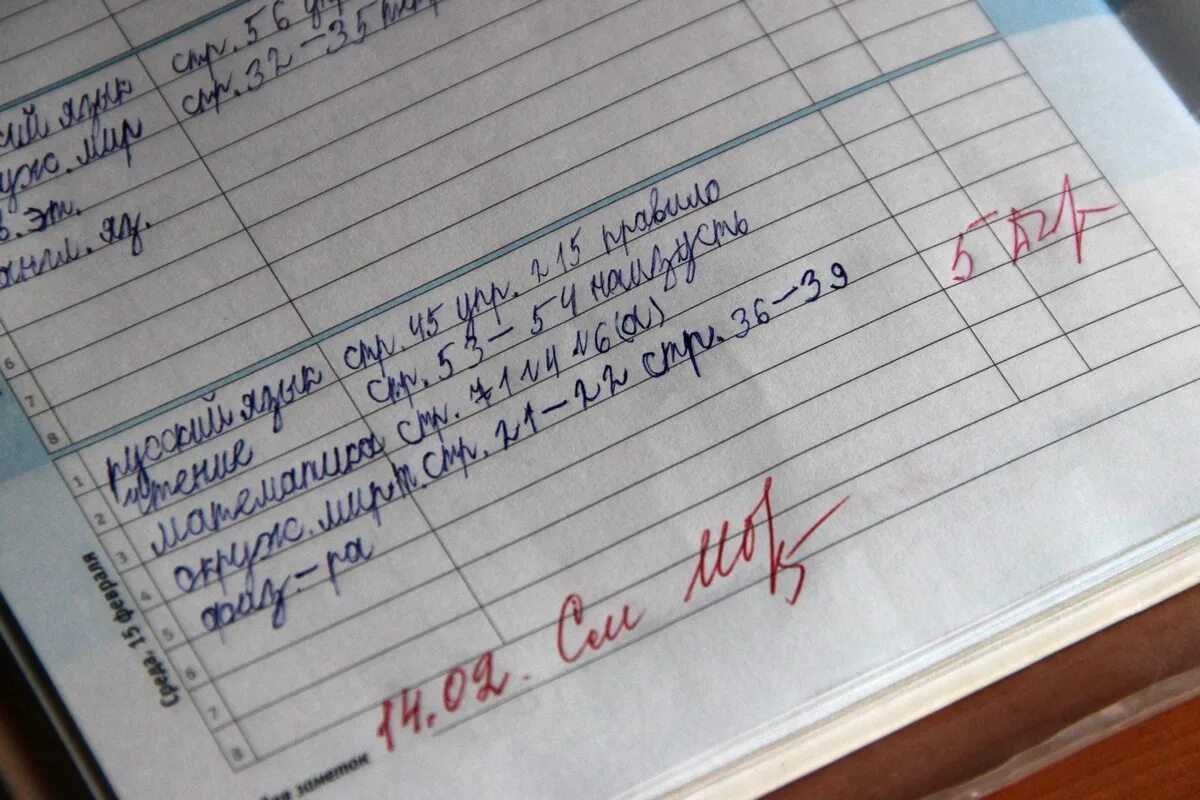 стр. 56 уп
ский язык стр. 32-35
уж. мир
в. эт.
англ. яз.
6
7
8
1 русский язык стр. 45 упр. 215 правило
2 чтение стр. 53-54 наизусть
3 математика стр. 71 №4 №6(а) 5
4 окруж. мир т. стр. 21-22 стр. 36-39
5 физ-ра
6
7
8
Среда, 15 февраля
14.02. См
для заметок